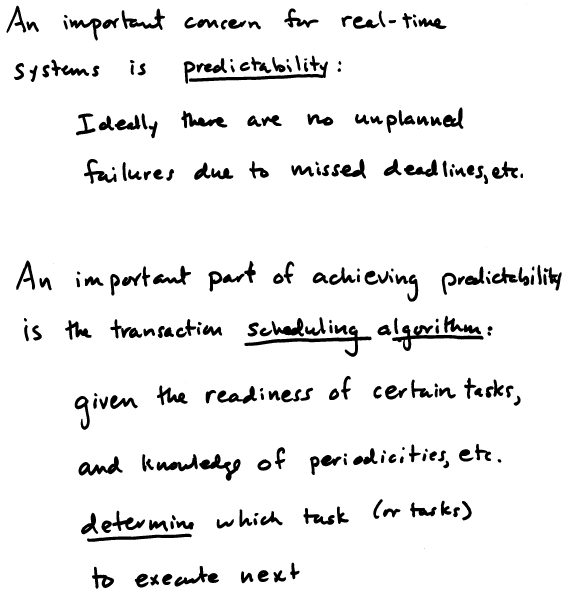 An important concern for real-time
systems is predictability:
Ideally there are no unplanned
failures due to missed deadlines, etc.
An important part of achieving predictability
is the transaction scheduling algorithm:
given the readiness of certain tasks,
and knowledge of periodicities, etc.
determine which task (or tasks)
to execute next